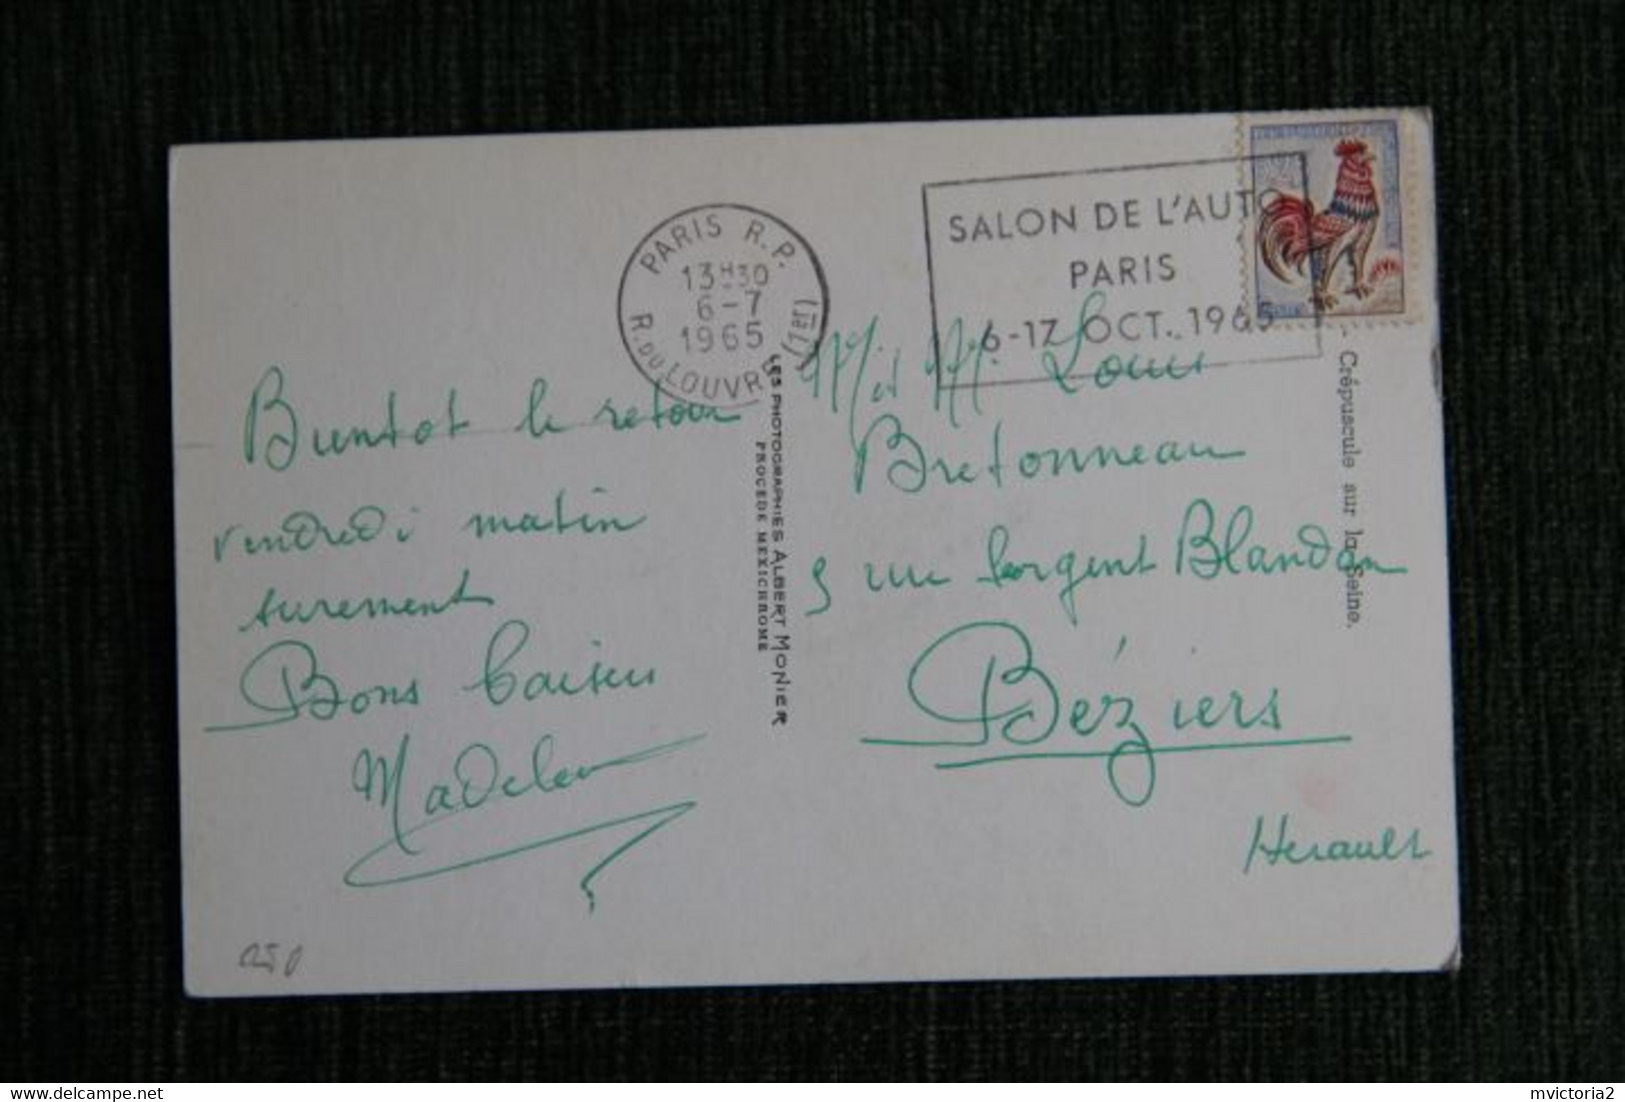 PARIS R.P.
13H30
6-7
1965
R. DU LOUVRE (1er)
SALON DE L'AUTO
PARIS
6-17 OCT. 1965
Bientot le retour
vendredi matin
surement
Bons baisers
Madeleine
LES PHOTOGRAPHIES ALBERT MONIER
PROCÉDÉ MEXICHROME
Mr et Mme Louis
Bretonneau
5 rue Sergent Blandan
Béziers
Herault
Crépuscule sur la Seine.
mvictoria2